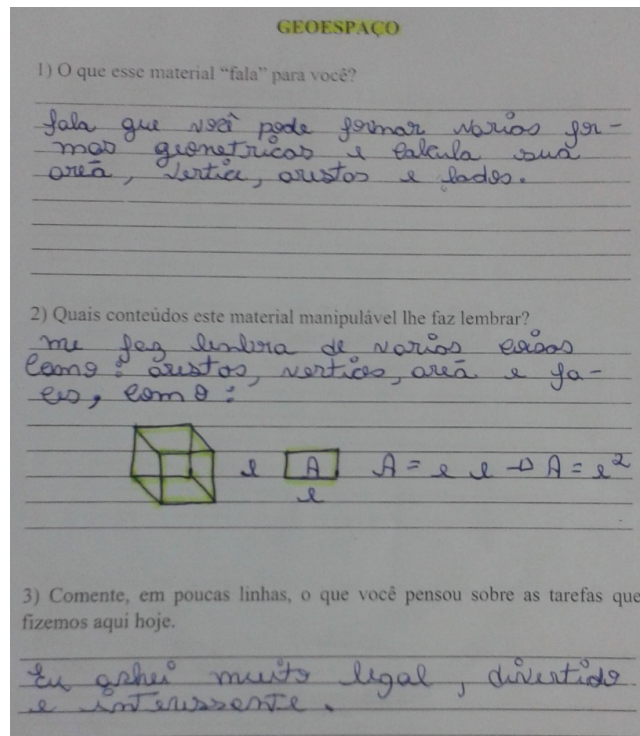 GEOESPAÇO
1) O que esse material “fala” para você?
fala que você pode formar varias for-
mas geometricas e calcula sua
areã, vertice, arestas e lados.
2) Quais conteúdos este material manipulável lhe faz lembrar?
me faz lembra de varias coisas
como: arestas, vertices, areã e fa-
ces, como:
l A A = l l → A = l²
l
3) Comente, em poucas linhas, o que você pensou sobre as tarefas que
fizemos aqui hoje.
Eu achei muito legal, divertido
e interessente.